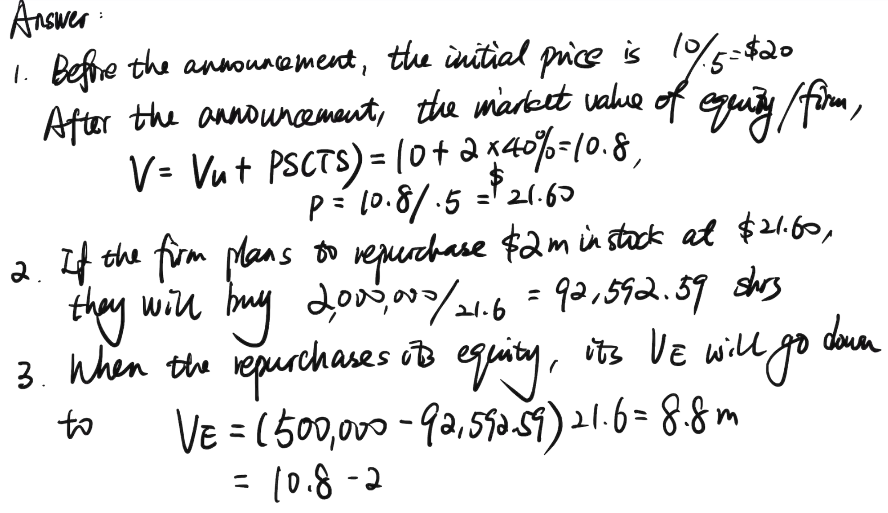 Answer:
1. Before the announcement, the initial price is 10/.5=$20
After the announcement, the market value of equity/firm,
V= Vu+ PSCTS)=10+2×40%=10.8,
P=10.8/.5=$21.60
2. If the firm plans to repurchase $2m in stock at $21.60,
they will buy 2,000,000/21.6 = 92,592.59 shrs
3. When the repurchases its equity, its VE will go down
to VE=(500,000-92,592.59)21.6=8.8m
= 10.8-2